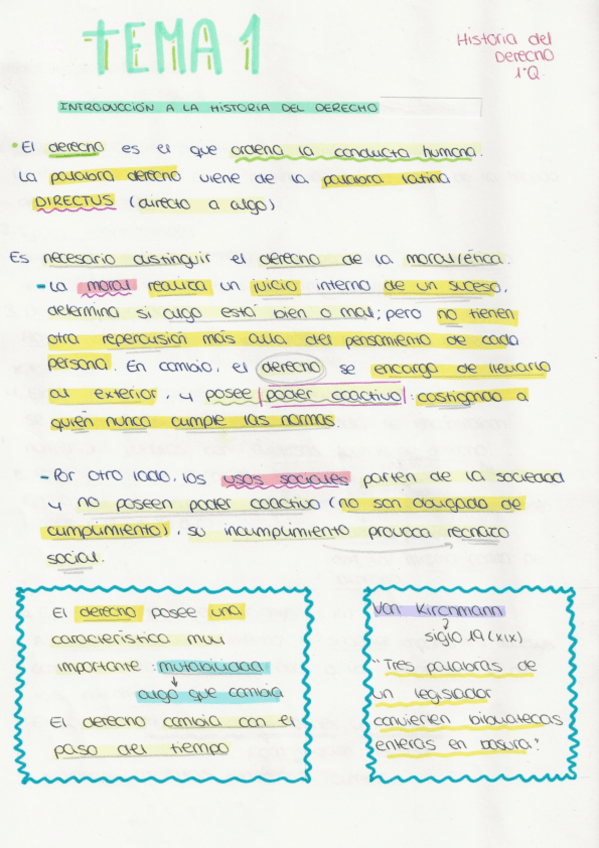 TEMA 1
Historia del
Derecho
1ºQ
INTRODUCCIÓN A LA HISTORIA DEL DERECHO
El derecho es el que ordena la conducta humana.
La palabra derecho viene de la palabra latina
DIRECTUS (directo a algo)
Es necesario distinguir el derecho de la moral/ética.
- La moral realiza un juicio interno de un suceso,
determina si algo está bien o mal; pero no tienen
otra repercusión más alla del pensamiento de cada
persona. En cambio, el derecho se encarga de llevarlo
al exterior, y posee poder coactivo: castigando a
quién nunca cumple las normas
- Por otro lado, los usos sociales parten de la sociedad
y no poseen poder coactivo (no son obligado de
cumplimiento), su incumplimiento provoca rechazo
social.
El derecho posee una
característica muy
importante: mutabilidad
↓
algo que cambia
El derecho cambia con el
paso del tiempo
Von Kirchmann
↓
siglo 19 (XIX)
"Tres palabras de
un legislador
convierten bibliotecas
enteras en basura."